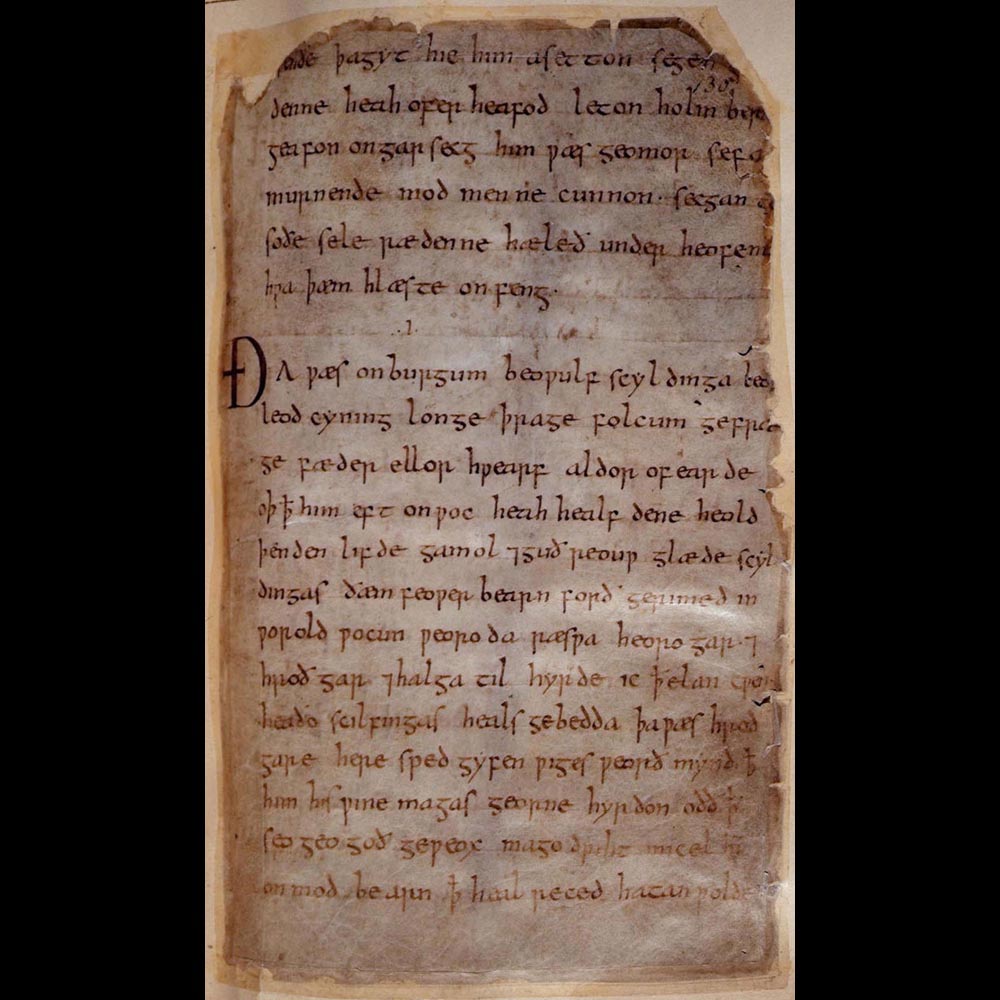 þagyt hie him asetton segen
130
denne heah ofer heafod leton holm ber
geafon ongarsecg him ƿæs geomor sefa
murnende mod men ne cunnon · secgan
soðe sele rædenne hæleð under heofenu
hƿa þæm hlæste onfeng ·
·I·
ÐA ƿæs onburgum beoƿulf scyldinga
leod cyning longe þrage folcum gefræ
ge fæder ellor hƿearf aldor ofearde
oþꝥ him eft onƿoc heah healfdene heold
þenden lifde gamol ⁊guð reouƿ glæde scyl
dingas ðæm feoƿer bearn forð gerimed in
ƿorold ƿocun ƿeoroda ræsƿa heorogar · ⁊
hroðgar ⁊halga til hyrde ic ꝥelan cƿen
heaðo scilfingas heals gebedda þaƿæs hroð
gare here sped gyfen ƿiges ƿeorð mynd ꝥ
him hisƿine magas georne hyrdon oððꝥ
seogeogoð geƿeox magodriht micel
onmod bearn ꝥ healreced hatan ƿolde